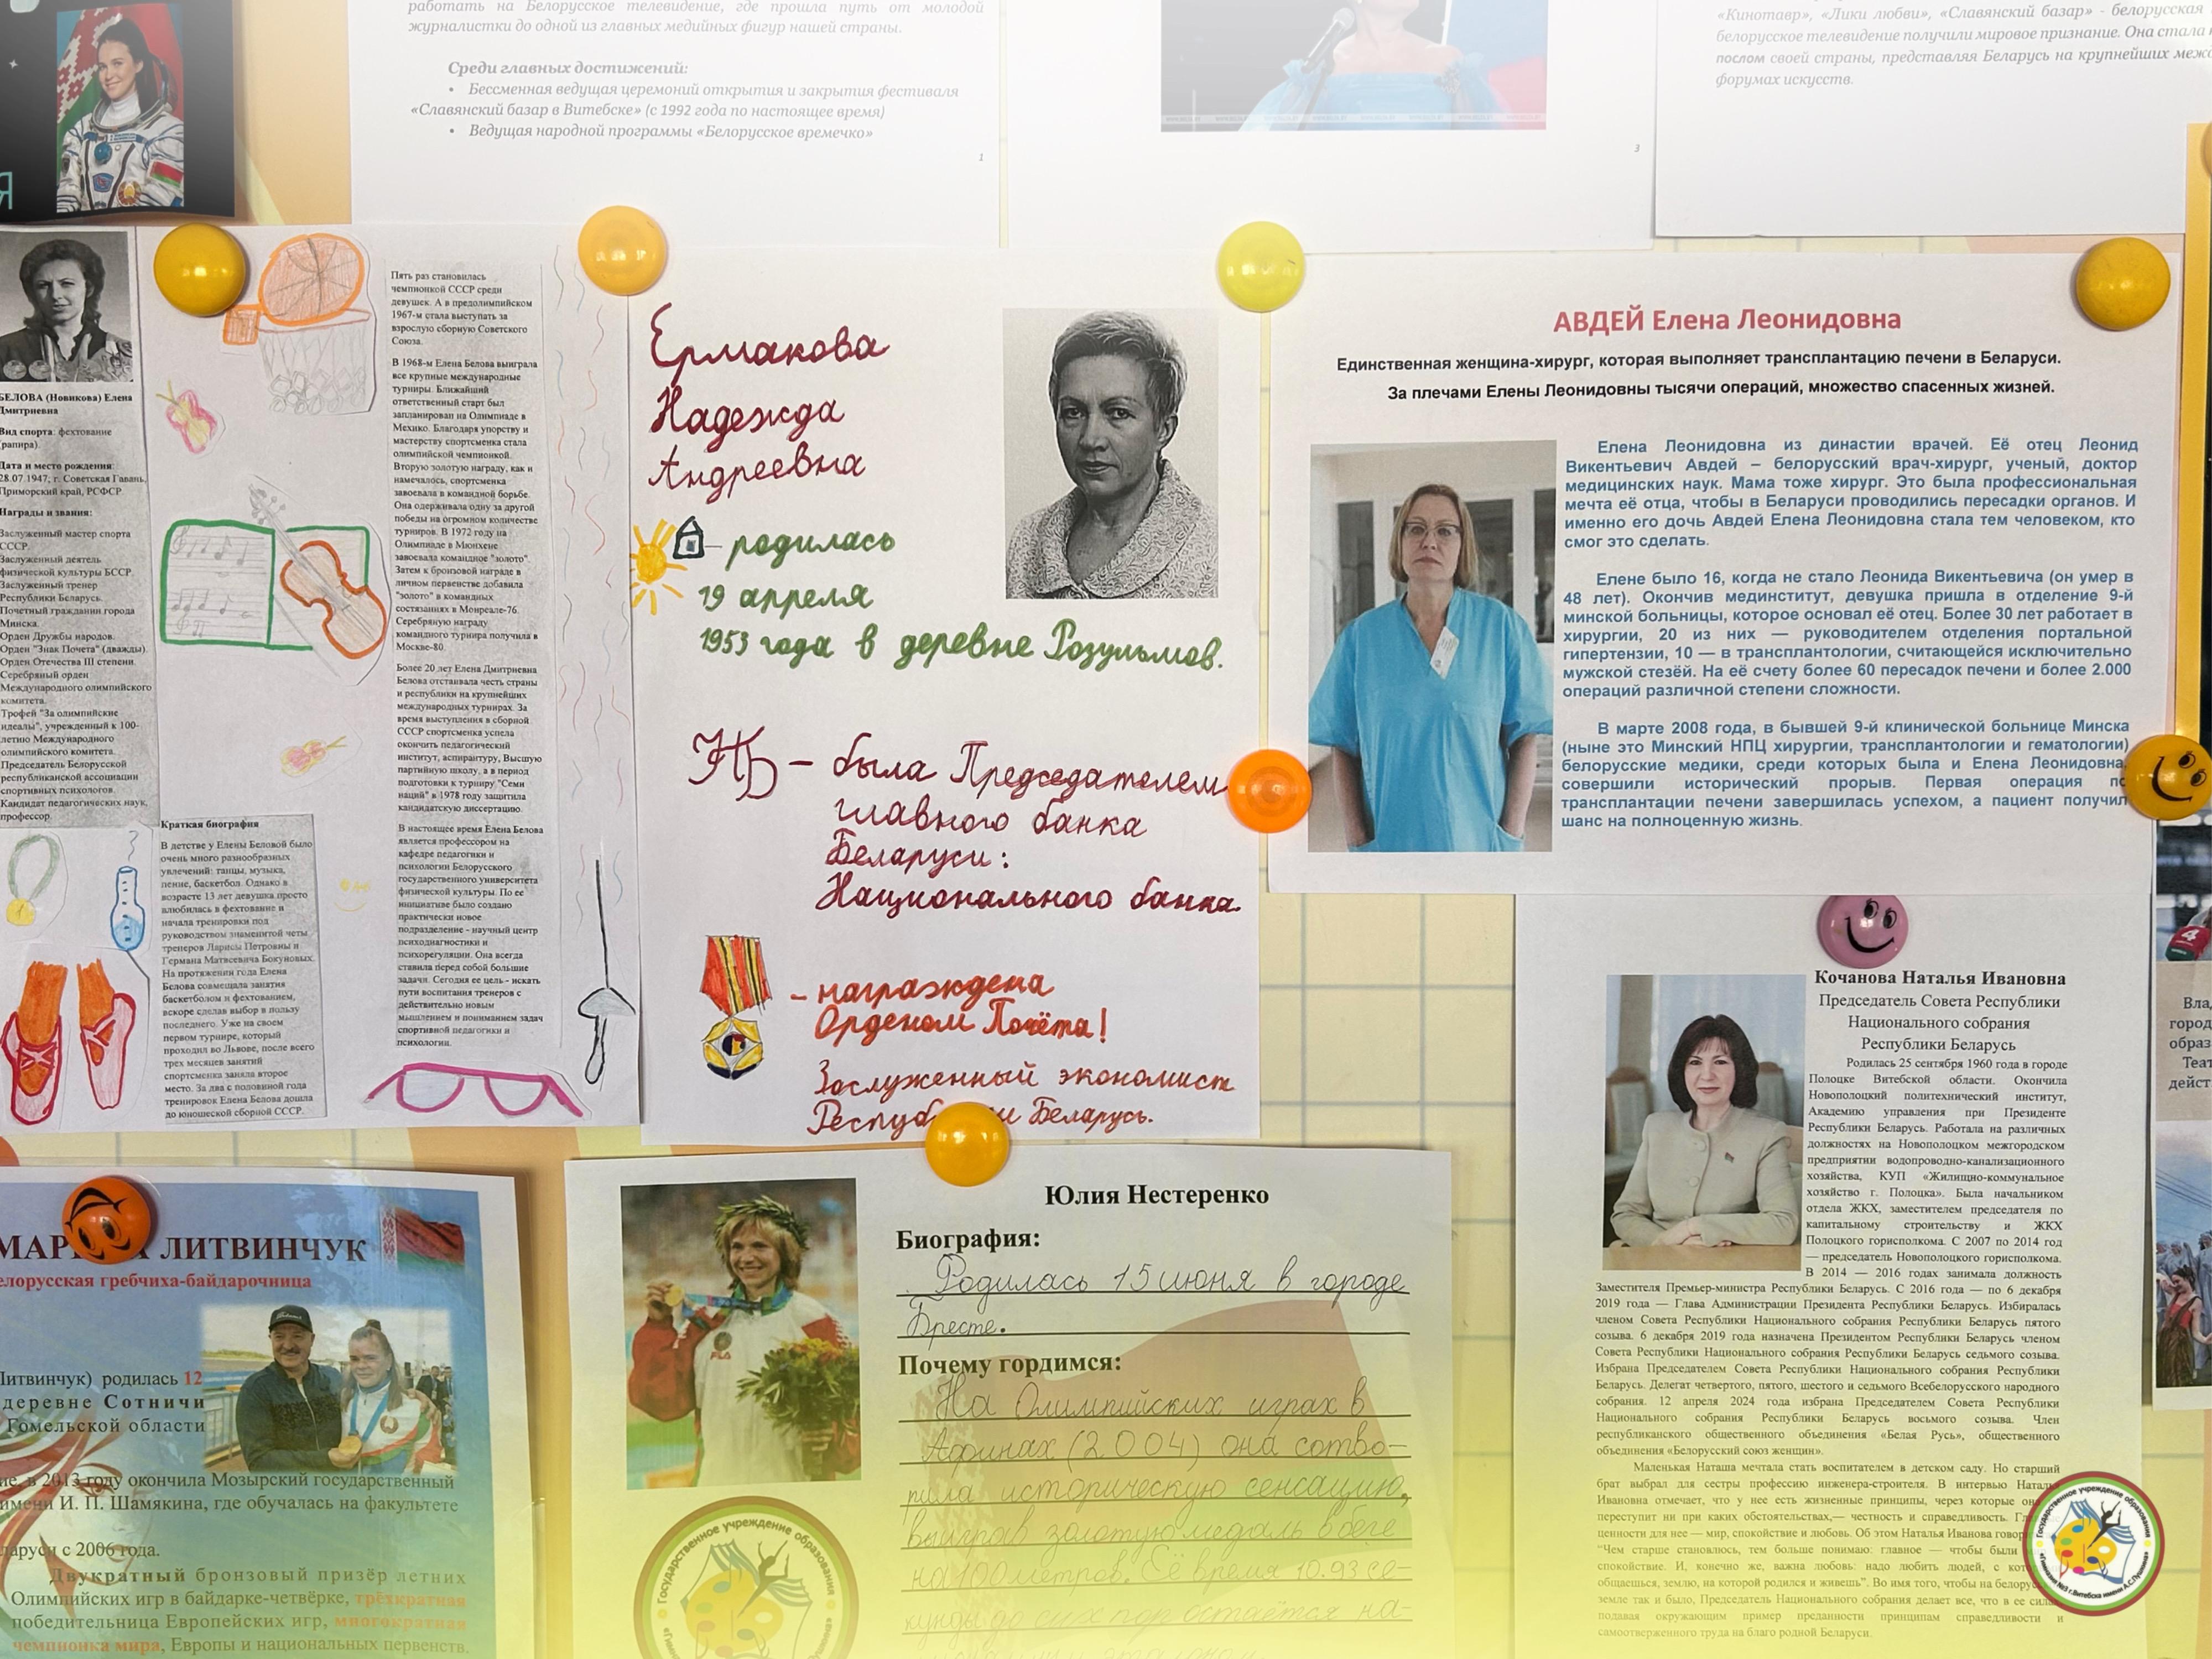 Я
работать на Белорусское телевидение, где прошла путь от молодой
журналистки до одной из главных медийных фигур нашей страны.
Среди главных достижений:
• Бессменная ведущая церемоний открытия и закрытия фестиваля
«Славянский базар в Витебске» (с 1992 года по настоящее время)
• Ведущая народной программы «Белорусское времечко»
1
3
«Кинотавр», «Лики любви», «Славянский базар» - белорусская
белорусское телевидение получили мировое признание. Она стала
послом своей страны, представляя Беларусь на крупнейших
форумах искусств.
БЕЛОВА (Новикова) Елена
Дмитриевна
Вид спорта: фехтование
(рапира).
Дата и место рождения:
28.07.1947, г. Советская Гавань,
Приморский край, РСФСР
Награды и звания:
Заслуженный мастер спорта
СССР.
Заслуженный деятель
физической культуры БССР.
Заслуженный тренер
Республики Беларусь.
Почетный гражданин города
Минска.
Орден Дружбы народов.
Орден "Знак Почета" (дважды).
Орден Отечества III степени.
Серебряный орден
Международного олимпийского
комитета.
Трофей "За олимпийские
идеалы", учрежденный к 100-
летию Международного
олимпийского комитета.
Председатель Белорусской
республиканской ассоциации
спортивных психологов.
Кандидат педагогических наук,
профессор.
Краткая биография
В детстве у Елены Беловой было
очень много разнообразных
увлечений: танцы, музыка,
пение, баскетбол. Однако в
возрасте 13 лет девушка просто
влюбилась в фехтование и
начала тренировки под
руководством знаменитой четы
тренеров Ларисы Петровны и
Германа Матвеевича Бокуновых.
На протяжении года Елена
Белова совмещала занятия
баскетболом и фехтованием,
вскоре сделав выбор в пользу
последнего. Уже на своем
первом турнире, который
проходил во Львове, после всего
трех месяцев занятий
спортсменка заняла второе
место. За два с половиной года
тренировок Елена Белова дошла
до юношеской сборной СССР.
Пять раз становилась
чемпионкой СССР среди
девушек. А в предолимпийском
1967-м стала выступать за
взрослую сборную Советского
Союза.
В 1968-м Елена Белова выиграла
все крупные международные
турниры. Ближайший
ответственный старт был
запланирован на Олимпиаде в
Мехико. Благодаря упорству и
мастерству спортсменка стала
олимпийской чемпионкой.
Вторую золотую награду, как и
намечалось, спортсменка
завоевала в командной борьбе.
Она одерживала одну за другой
победы на огромном количестве
турниров. В 1972 году на
Олимпиаде в Мюнхене
завоевала командное "золото".
Затем к бронзовой награде в
личном первенстве добавила
"золото" в командных
состязаниях в Монреале-76.
Серебряную награду
командного турнира получила в
Москве-80.
Более 20 лет Елена Дмитриевна
Белова отстаивала честь страны
и республики на крупнейших
международных турнирах. За
время выступления в сборной
СССР спортсменка успела
окончить педагогический
институт, аспирантуру, Высшую
партийную школу, а в период
подготовки к турниру "Семи
наций" в 1978 году защитила
кандидатскую диссертацию.
В настоящее время Елена Белова
является профессором на
кафедре педагогики и
психологии Белорусского
государственного университета
физической культуры. По ее
инициативе было создано
практически новое
подразделение - научный центр
психодиагностики и
психорегуляции. Она всегда
ставила перед собой большие
задачи. Сегодня ее цель - искать
пути воспитания тренеров с
действительно новым
мышлением и пониманием задач
спортивной педагогики и
психологии.
Ермакова
Надежда
Андреевна
– родилась
19 апреля
1953 года в деревне Розульмов.
НБ – была Председателем
главного банка
Беларуси:
Национального банка.
– награждена
Орденом Почёта!
Заслуженный экономист
Беларусь.
АВДЕЙ Елена Леонидовна
Единственная женщина-хирург, которая выполняет трансплантацию печени в Беларуси.
За плечами Елены Леонидовны тысячи операций, множество спасенных жизней.
Елена Леонидовна из династии врачей. Её отец Леонид
Викентьевич Авдей – белорусский врач-хирург, ученый, доктор
медицинских наук. Мама тоже хирург. Это была профессиональная
мечта её отца, чтобы в Беларуси проводились пересадки органов. И
именно его дочь Авдей Елена Леонидовна стала тем человеком, кто
смог это сделать.
Елене было 16, когда не стало Леонида Викентьевича (он умер в
48 лет). Окончив мединститут, девушка пришла в отделение 9-й
минской больницы, которое основал её отец. Более 30 лет работает в
хирургии, 20 из них — руководителем отделения портальной
гипертензии, 10 — в трансплантологии, считающейся исключительно
мужской стезёй. На её счету более 60 пересадок печени и более 2.000
операций различной степени сложности.
В марте 2008 года, в бывшей 9-й клинической больнице Минска
(ныне это Минский НПЦ хирургии, трансплантологии и гематологии)
белорусские медики, среди которых была и Елена Леонидовна,
совершили исторический прорыв. Первая операция по
трансплантации печени завершилась успехом, а пациент получил
шанс на полноценную жизнь.
Кочанова Наталья Ивановна
Председатель Совета Республики
Национального собрания
Республики Беларусь
Родилась 25 сентября 1960 года в городе
Полоцке Витебской области. Окончила
Новополоцкий политехнический институт,
Академию управления при Президенте
Республики Беларусь. Работала на различных
должностях на Новополоцком межгородском
предприятии водопроводно-канализационного
хозяйства, КУП «Жилищно-коммунальное
хозяйство г. Полоцка». Была начальником
отдела ЖКХ, заместителем председателя по
капитальному строительству и ЖКХ
Полоцкого горисполкома. С 2007 по 2014 год
— председатель Новополоцкого горисполкома.
В 2014 — 2016 годах занимала должность
Заместителя Премьер-министра Республики Беларусь. С 2016 года — по 6 декабря
2019 года — Глава Администрации Президента Республики Беларусь. Избиралась
членом Совета Республики Национального собрания Республики Беларусь пятого
созыва. 6 декабря 2019 года назначена Президентом Республики Беларусь членом
Совета Республики Национального собрания Республики Беларусь седьмого созыва.
Избрана Председателем Совета Республики Национального собрания Республики
Беларусь. Делегат четвертого, пятого, шестого и седьмого Всебелорусского народного
собрания. 12 апреля 2024 года избрана Председателем Совета Республики
Национального собрания Республики Беларусь восьмого созыва. Член
республиканского общественного объединения «Белая Русь», общественного
объединения «Белорусский союз женщин».
Маленькая Наташа мечтала стать воспитателем в детском саду. Но старший
брат выбрал для сестры профессию инженера-строителя. В интервью
Ивановна отмечает, что у нее есть жизненные принципы, через которые
переступит ни при каких обстоятельствах,— честность и справедливость.
ценности для нее — мир, спокойствие и любовь. Об этом Наталья Иванова
"Чем старше становлюсь, тем больше понимаю: главное — чтобы были
спокойствие. И, конечно же, важна любовь: надо любить людей, с
общаешься, землю, на которой родился и живешь". Во имя того, чтобы на
земле так и было, Председатель Национального собрания делает все, что в ее
подавая окружающим пример преданности принципам справедливости и
самоотверженного труда на благо родной Беларуси.
4
Вла
город
образ
Теат
дейст
ЛИТВИНЧУК
белорусская гребчиха-байдарочница
Литвинчук) родилась 12
деревне Сотничи
Гомельской области
в 2013 году окончила Мозырский государственный
имени И. П. Шамякина, где обучалась на факультете
с 2006 года.
Двукратный бронзовый призёр летних
Олимпийских игр в байдарке-четвёрке, трёхкратная
победительница Европейских игр, многократная
чемпионка мира, Европы и национальных первенств.
FILA
Юлия Нестеренко
Биография:
Родилась 15 июня в городе
Бресте.
Почему гордимся:
На Олимпийских играх в
Афинах (2004) она сотво-
рила историческую сенсацию,
выиграв золотую медаль в беге
на 100 метров. Её время 10.93 се-
кунды до сих пор остаётся на-
Государственное учреждение образования
Государственное учреждение образования
«Гимназия №3 г.Витебска имени А.С.Пушкина»